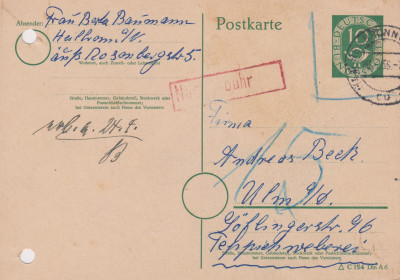 Absender:
Frau Berta Baumann
Heilbronn a/N.
auß. Rosenbergstr. 5
Wohnort, auch Zustell- oder Leitpostamt
Straße, Hausnummer, Gebäudeteil, Stockwerk oder
Postschließfachnummer;
bei Untermietern auch Name des Vermieters
Postkarte
DEUTSCHE BUNDESPOST
10
Nachgebühr
15
Firma
Andreas Beck.
Ulm a/d.
Söflingerstr. 96
Teppichweberei
Straße, Hausnummer, Gebäudeteil, Stockwerk oder Postschließfachnummer;
bei Untermietern auch Name des Vermieters
C 154 Din A 6